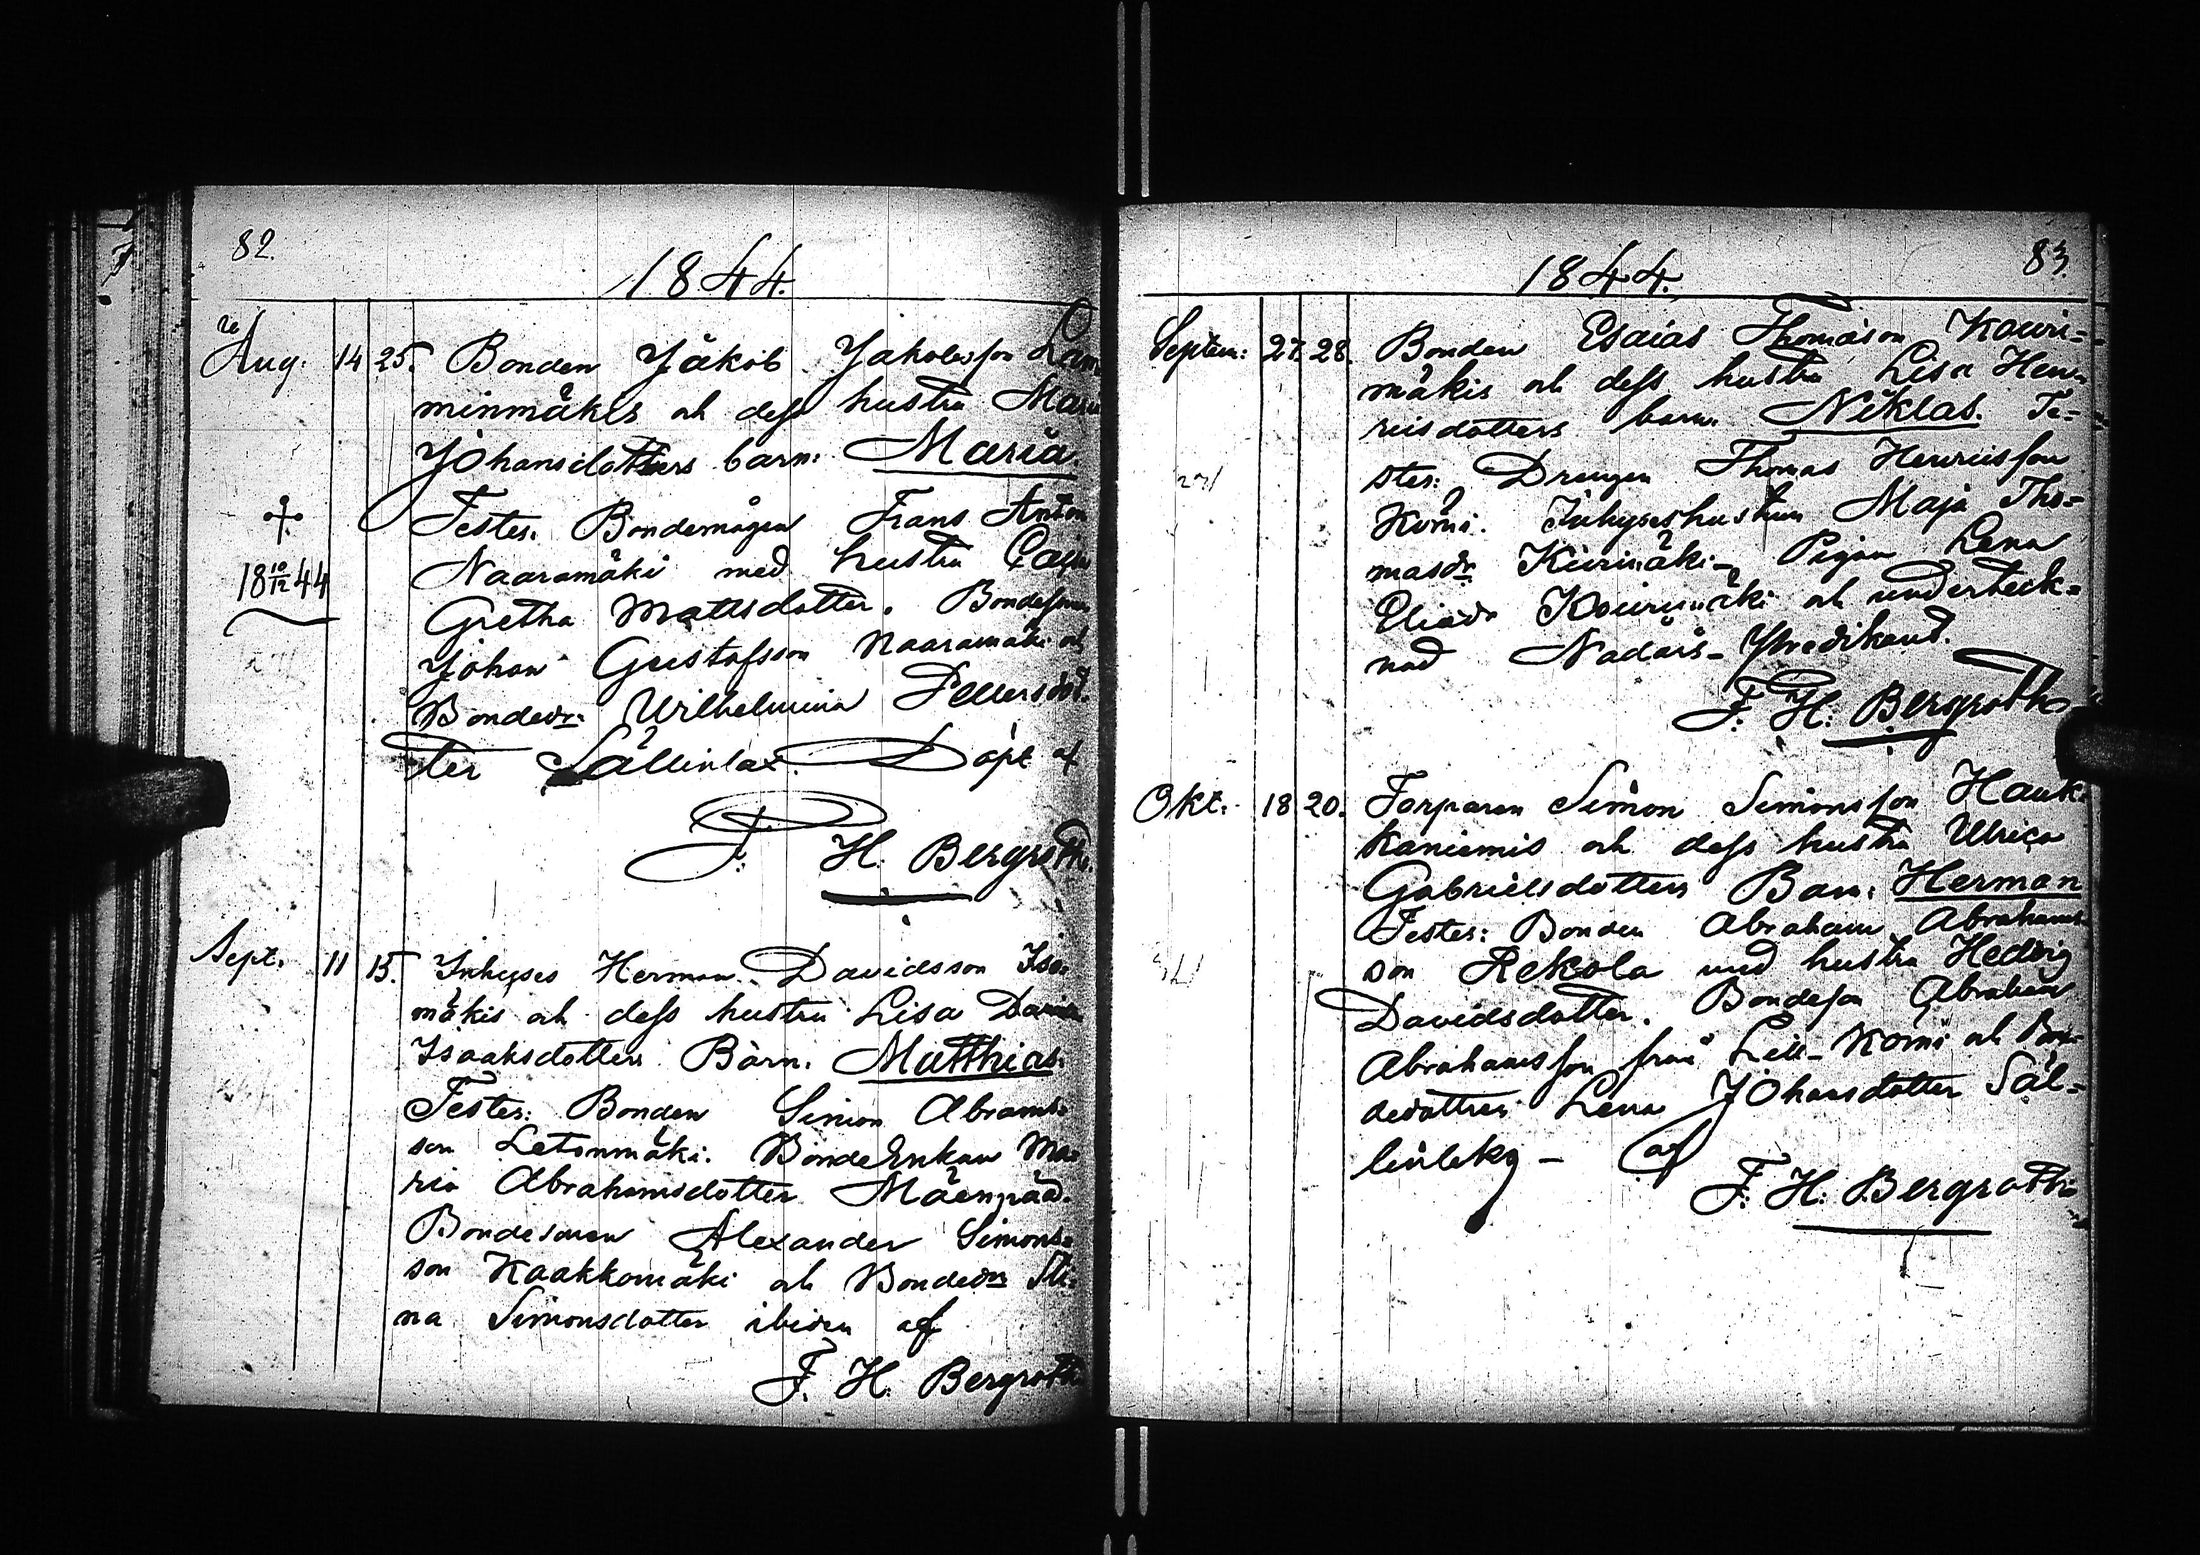 82.
1844.
Aug: 14 25. Bonden Jakob Jakobsson Lam
minmäkis och dess hustru Maria
Johansdotters barn: Maria.
Testes. Bondemågen Frans Anton
Naaramäki med hustru Cajsa
Gretha Mattsdotter. Bondesonen
Johan Gustafsson Naaramäki och
Bondedr: Wilhelmina Pettersdot
ter Sällinlax. Döpt af
18 10/12 44
F. H. Bergroth.
Sept. 11 15. Inhyses Herman Davidsson Iso
mäkis och dess hustru Lisa
Isaaksdotters Barn. Matthias.
Testes: Bonden Simon Abrams-
son Letonmäki. BondeEnkan Ma-
ria Abrahamsdotter Mäenpää.
Bondesonen Alexander Simons-
son Kaakkomäki och Bondedr Sti-
na Simonsdotter ibidem af
F. H. Bergroth
1844.
83
Septem: 27. 28. Bonden Esaias Thomasson Kouri=
mäkis och dess hustru Lisa Hen
riisdotters barn. Niklas. Te=
stes: Drengen Thomas Henriisson
Komi. Inhyseshustrun Maja Tho=
masdr Kiurinäki Pigan Lena
Eliædr Kouri och underteck=
nad Nadårs-Predikant.
F. H: Bergroth
Okt. 18 20. Torparen Simon Simonsson Hauk
kaniemis och dess hustru Ulrica
Gabrielsdotters Barn: Herman
Testes: Bonden Abraham Abrahams
son Rekola med hustru Hedvig
Davidsdotter. Bondeson Abraham
Abrahamsson från Lill-Komi och Bon-
dedottren Lena Johansdotter Säl=
af
F. H. Bergroth